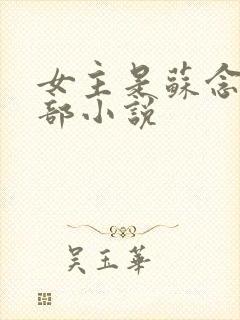 女主是蘇念
部小說
吳玉華